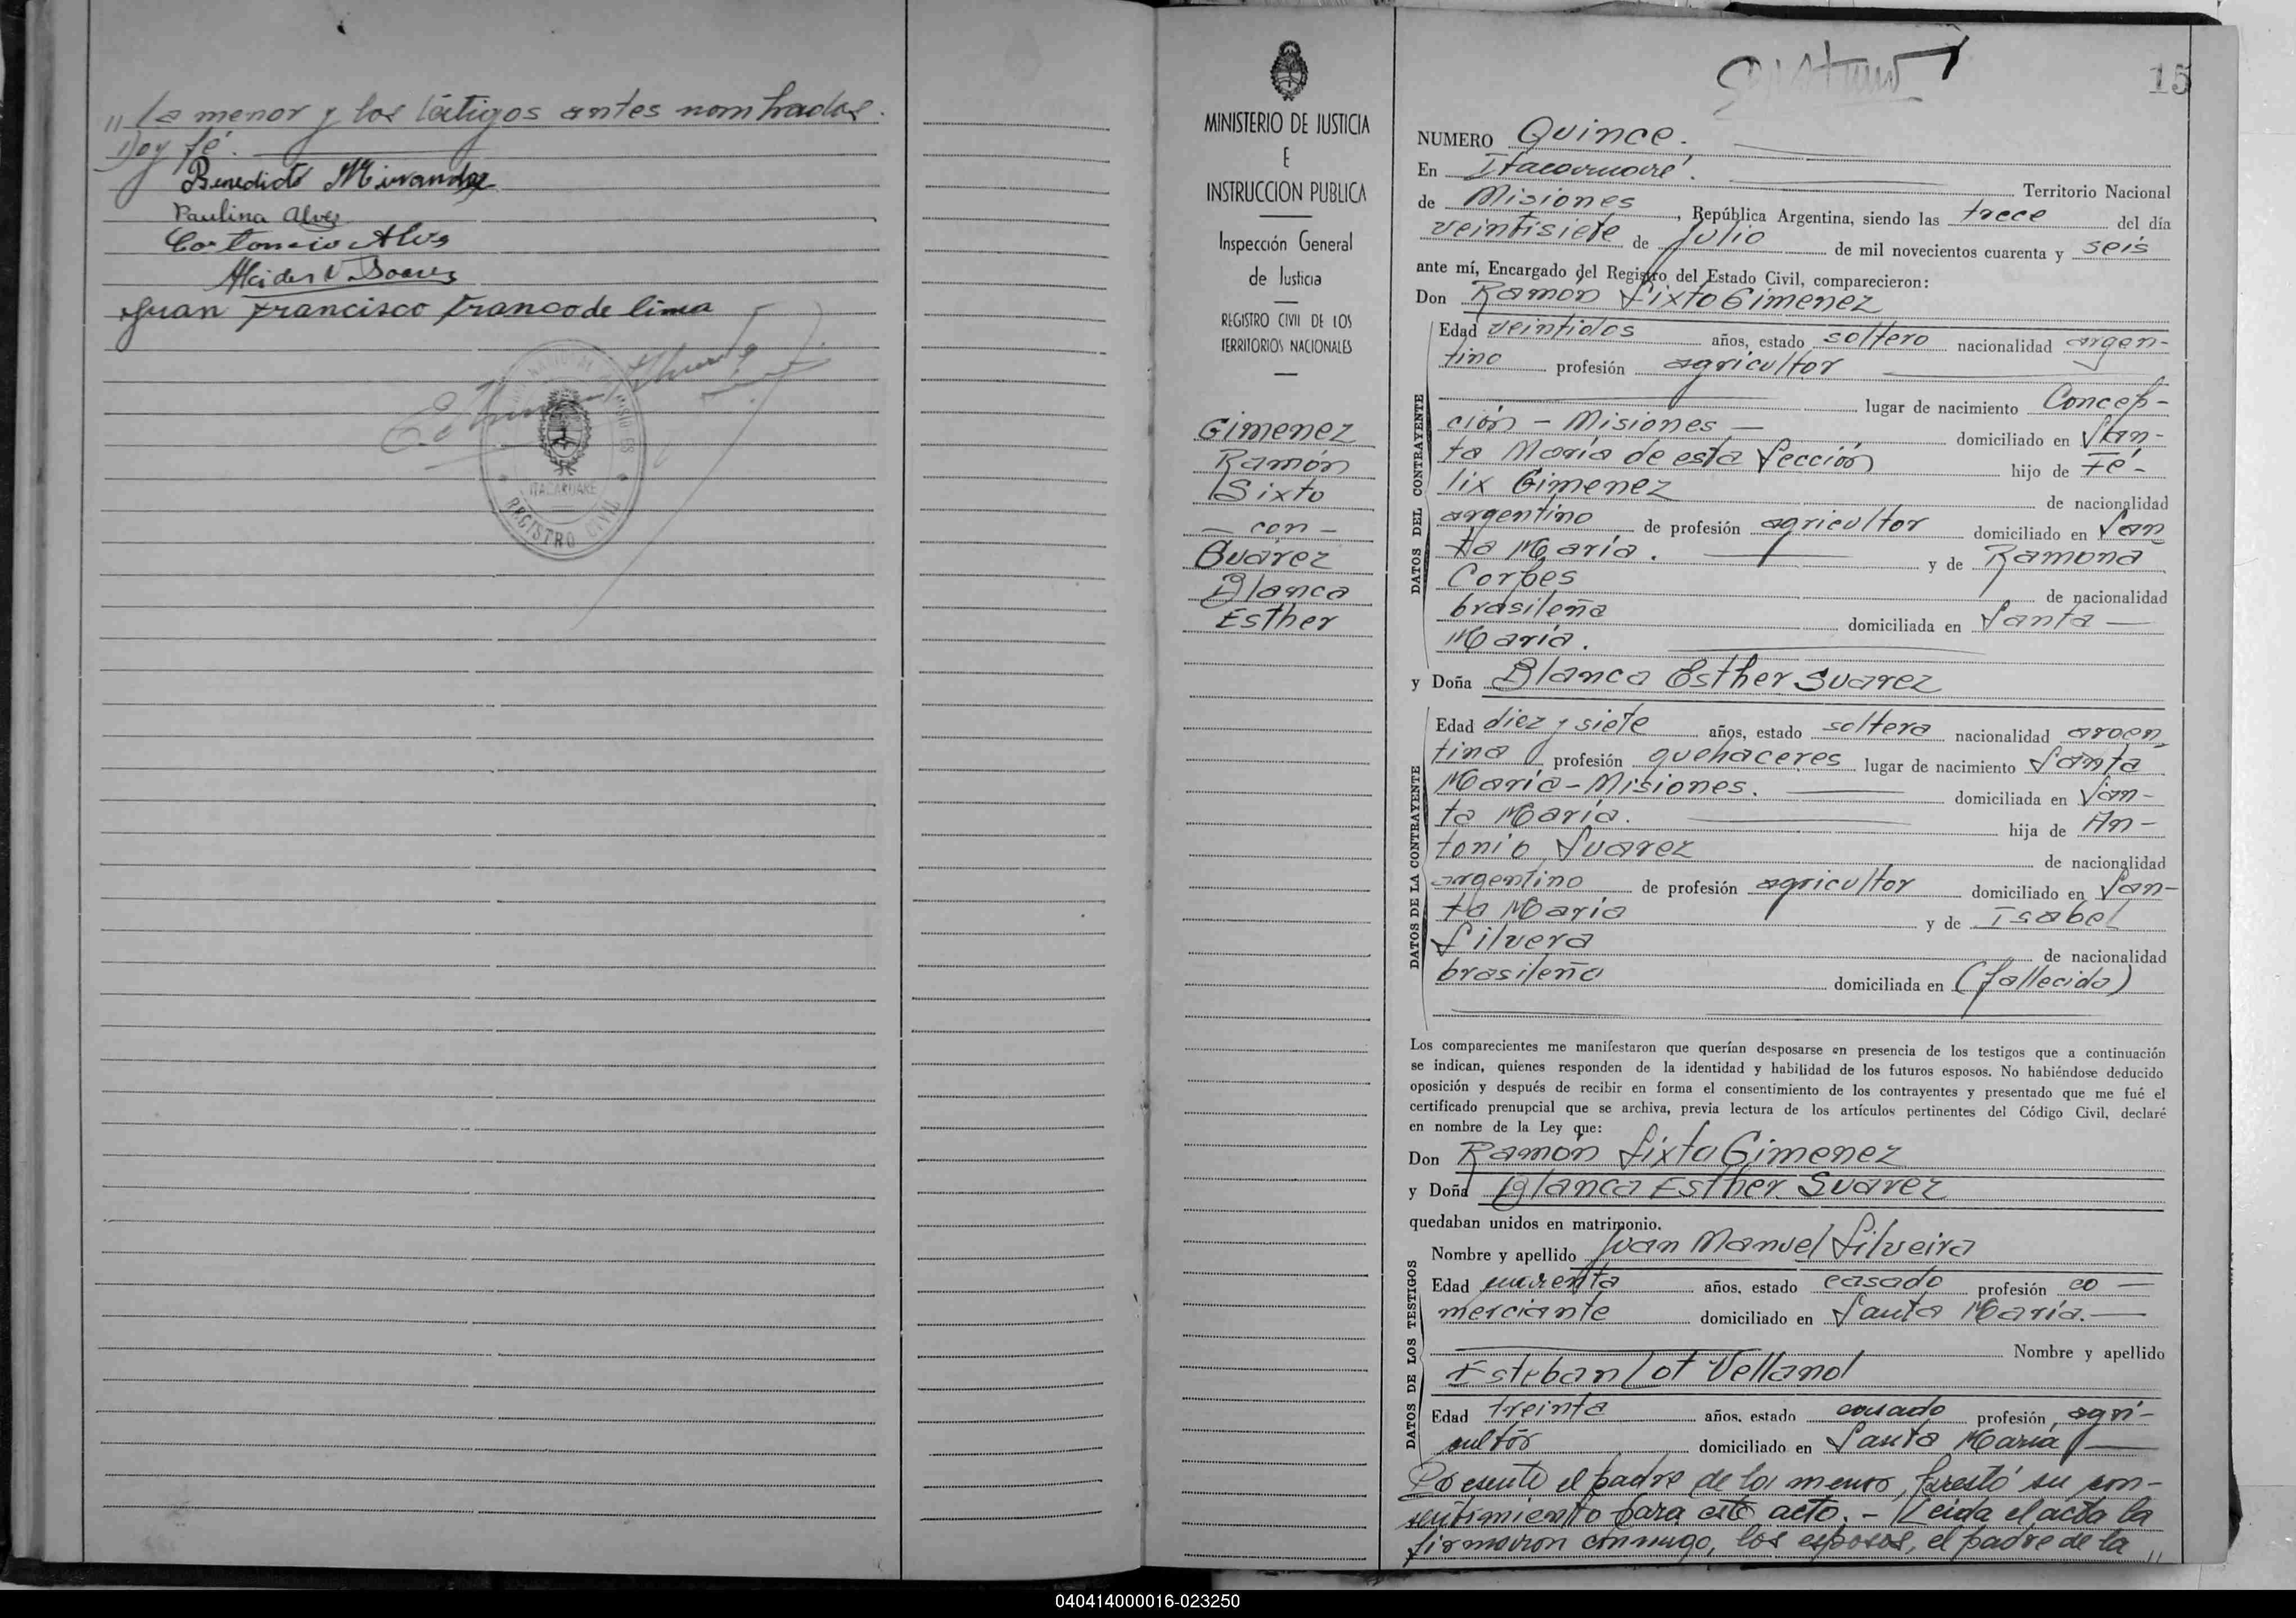 "la menor y los testigos antes nombrados.
Doy fé.
Benedicto Miranda
Paulina Alves
Alves
Alcides V. Soares
Juan Francisco Franco de lima
ITACARUARE
REGISTRO CIVIL
MINISTERIO DE JUSTICIA
E
INSTRUCCION PUBLICA
Inspección General
de Justicia
REGISTRO CIVIL DE LOS
TERRITORIOS NACIONALES
Gimenez
Ramón
Sixto
— con —
Suárez
Blanca
Esther
15
NUMERO Quince.
En Itacaruaré. Territorio Nacional
de Misiones, República Argentina, siendo las trece del día
veintisiete de Julio de mil novecientos cuarenta y seis
ante mí, Encargado del Registro del Estado Civil, comparecieron:
Don Ramón Sixto Gimenez
DATOS DEL CONTRAYENTE
Edad veintidos años, estado soltero nacionalidad argen-
tino profesión agricultor
lugar de nacimiento Concep-
ción - Misiones — domiciliado en San-
ta María de esta Sección hijo de Fé-
lix Gimenez de nacionalidad
argentino de profesión agricultor domiciliado en San
ta María. y de Ramona
Corpes de nacionalidad
brasileña domiciliada en Santa —
María.
y Doña Blanca Esther Suarez
DATOS DE LA CONTRAYENTE
Edad diez y siete años, estado soltera nacionalidad argen
tina profesión quehaceres lugar de nacimiento Santa
María - Misiones. domiciliada en San-
ta María. hija de An-
tonio Suarez de nacionalidad
argentino de profesión agricultor domiciliado en San-
ta María y de Isabel
Silvera de nacionalidad
brasileña domiciliada en (fallecida)
Los comparecientes me manifestaron que querían desposarse en presencia de los testigos que a continuación
se indican, quienes responden de la identidad y habilidad de los futuros esposos. No habiéndose deducido
oposición y después de recibir en forma el consentimiento de los contrayentes y presentado que me fué el
certificado prenupcial que se archiva, previa lectura de los artículos pertinentes del Código Civil, declaré
en nombre de la Ley que:
Don Ramón Sixto Gimenez
y Doña Blanca Esther Suarez
quedaban unidos en matrimonio.
DATOS DE LOS TESTIGOS
Nombre y apellido Juan Manuel Silveira
Edad cuarenta años, estado casado profesión co —
merciante domiciliado en Santa María. —
Nombre y apellido
Esteban Lot Velland
Edad treinta años, estado casado profesión agri-
cultor domiciliado en Santa María —
Presente el padre de la menor, prestó su con-
sentimiento para este acto. - Leida el acta la
firmaron conmigo, los esposos, el padre de la "
040414000016-023250